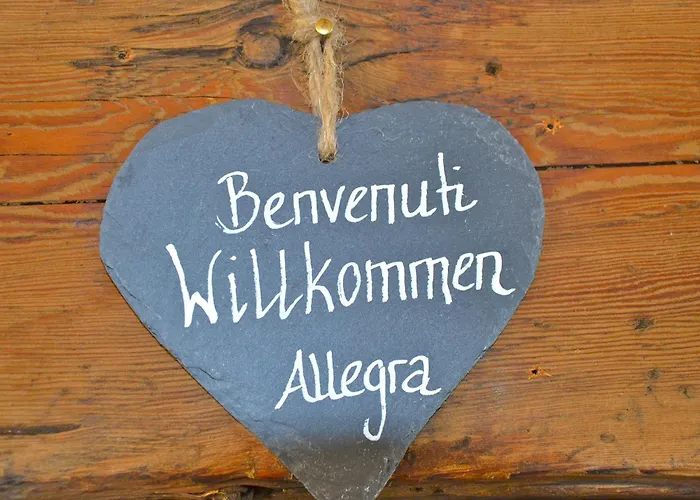 Benvenuti
Willkommen
Allegra